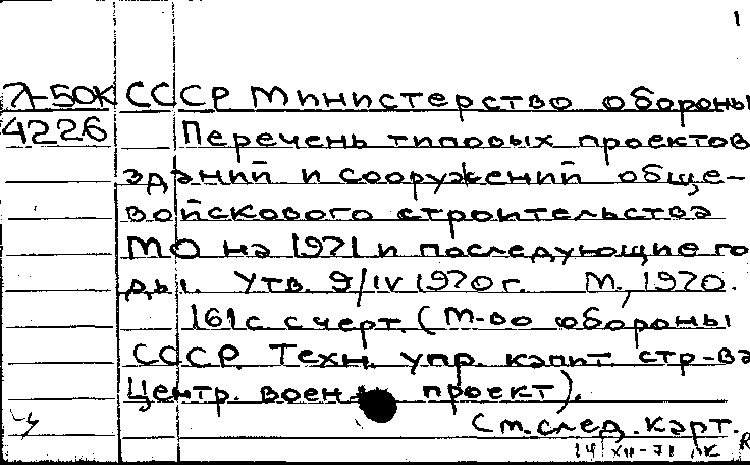 1
Л-50К СССР Министерство обороны
4226 Перечень типовых проектов
зданий и сооружений обще-
войскового строительства
МО на 1971 и последующие го
ды. Утв. 9/IV 1970 г. М., 1970.
161 с с черт. (М-во обороны
СССР. Техн. упр. капит. стр-ва
Центр. воен проект).
См. след. карт.
14 XII-71